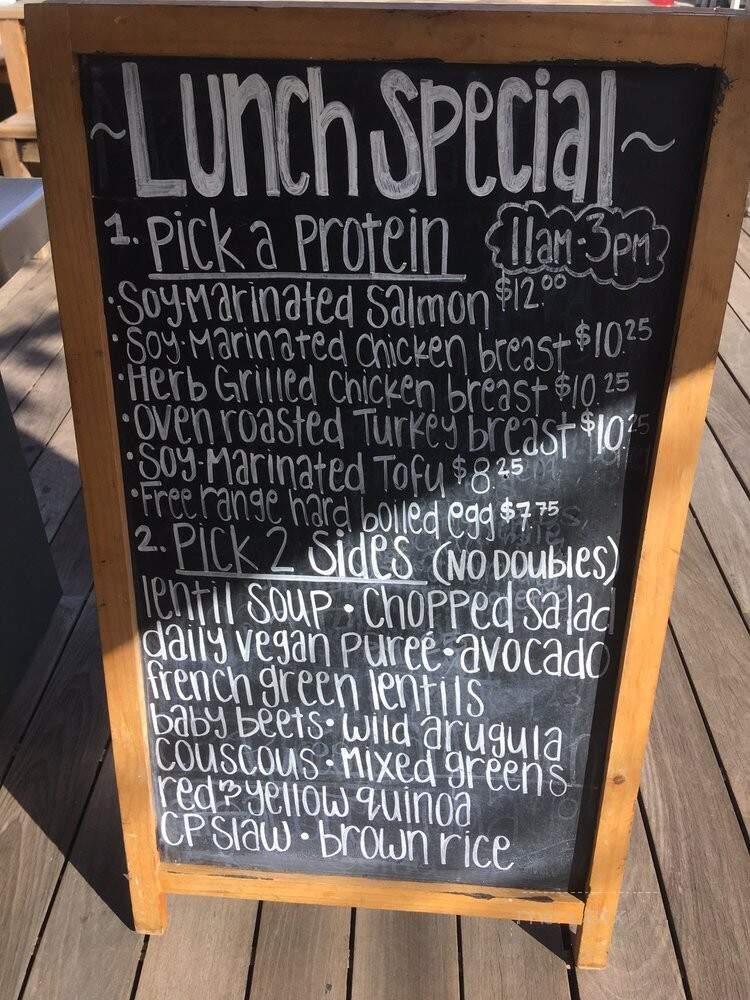 ~Lunch Special~
1. Pick a Protein 11am-3pm
·Soy-Marinated Salmon $12.00
·Soy-Marinated Chicken breast $10.25
·Herb Grilled Chicken breast $10.25
·Oven roasted Turkey breast $10.25
·Soy-Marinated Tofu $8.25
·Free range hard boiled egg $7.75
2. Pick 2 Sides (NO DOUBLES)
lentil soup · Chopped Salad
daily vegan pureé · avocado
french green lentils
baby beets · wild arugula
couscous · Mixed greens
red & yellow quinoa
CP Slaw · brown rice